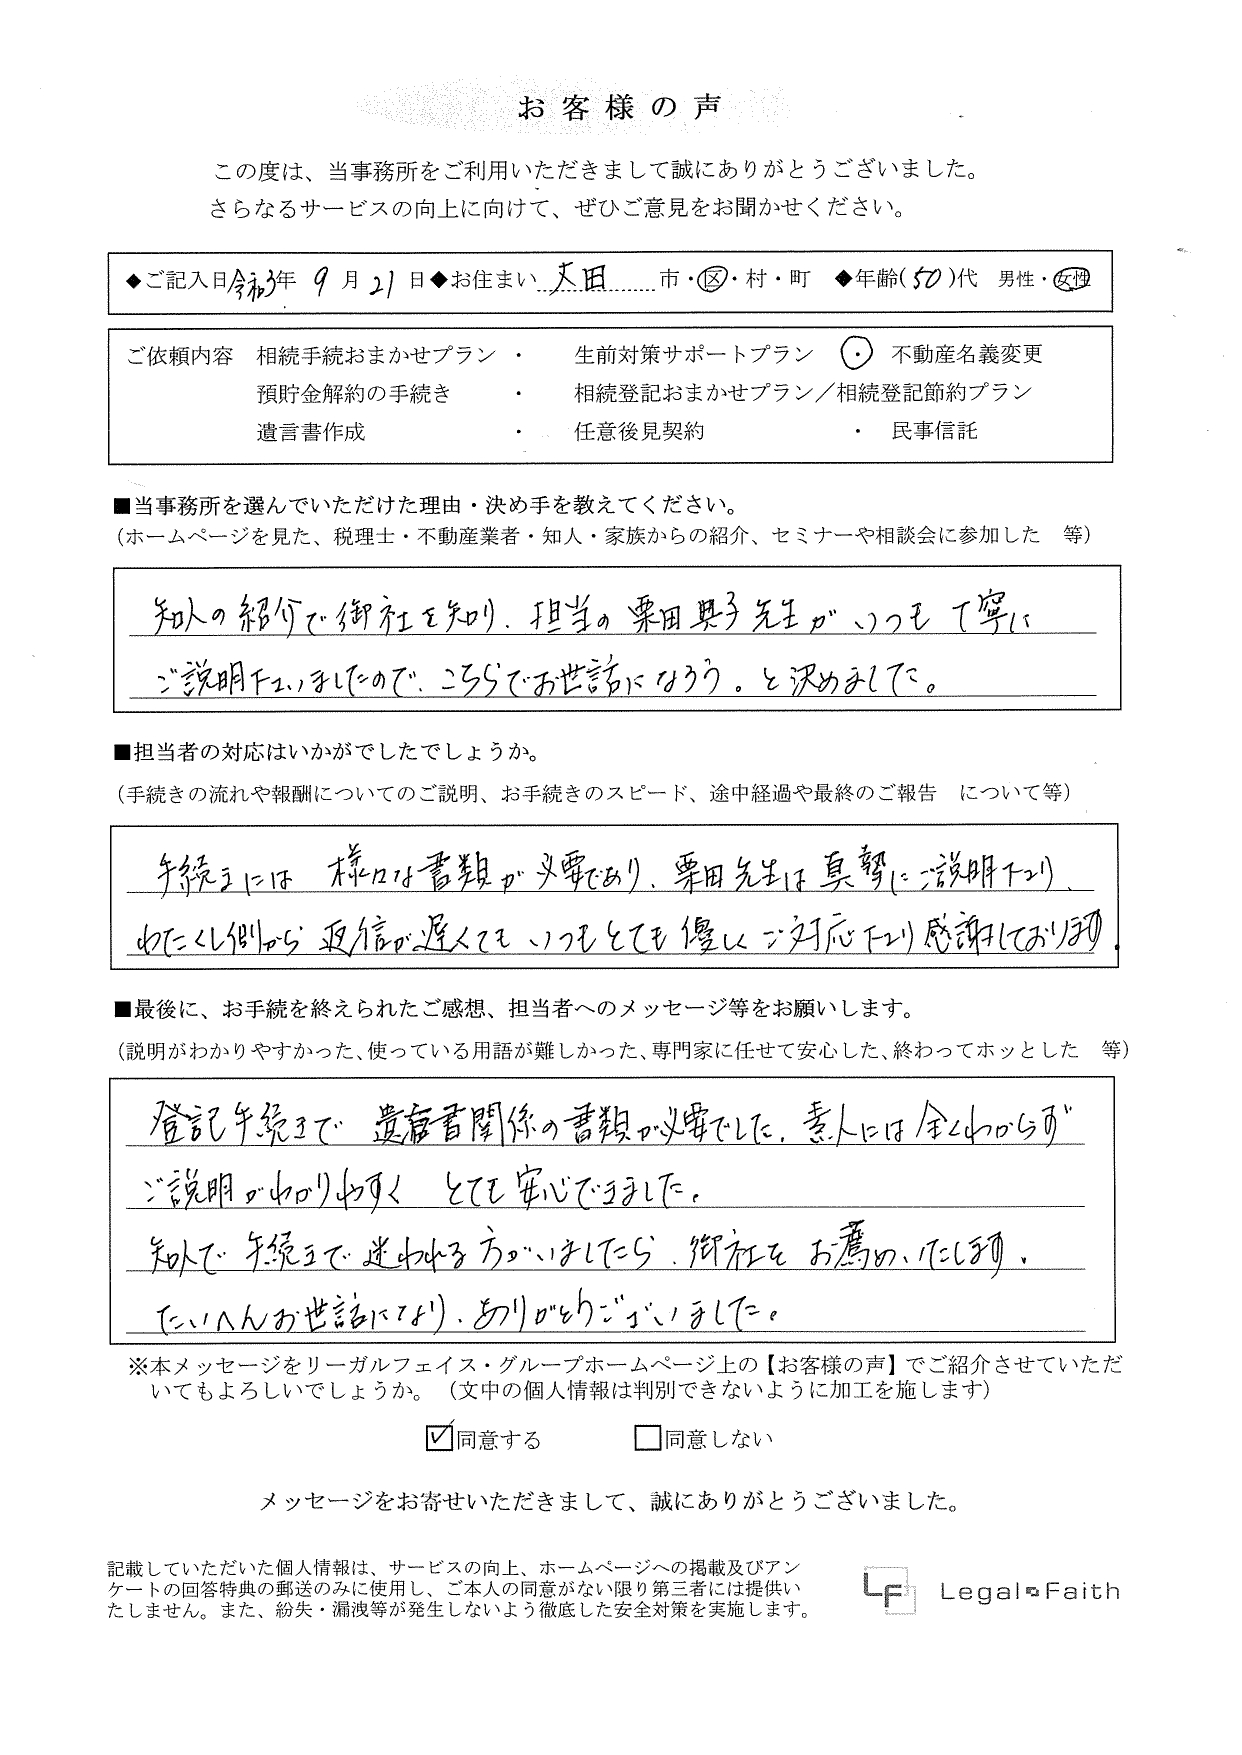 お客様の声
この度は、当事務所をご利用いただきまして誠にありがとうございました。
さらなるサービスの向上に向けて、ぜひご意見をお聞かせください。
◆ご記入日 令和3年 9月 21日 ◆お住まい 大田 市・区・村・町 ◆年齢(50)代 男性・女性
ご依頼内容 相続手続おまかせプラン ・ 生前対策サポートプラン ・ 不動産名義変更
預貯金解約の手続き ・ 相続登記おまかせプラン／相続登記節約プラン
遺言書作成 ・ 任意後見契約 ・ 民事信託
■当事務所を選んでいただけた理由・決め手を教えてください。
（ホームページを見た、税理士・不動産業者・知人・家族からの紹介、セミナーや相談会に参加した 等）
知人の紹介で御社を知り、担当の栗田典子先生がいつも丁寧に
ご説明下さいましたので、こちらでお世話になろう。と決めました。
■担当者の対応はいかがでしたでしょうか。
（手続きの流れや報酬についてのご説明、お手続きのスピード、途中経過や最終のご報告 について等）
手続きには 様々な書類が必要であり、栗田先生は真摯にご説明下さり、
わたくし側から返信が遅くてもいつもとても優しくご対応下さり感謝しております.
■最後に、お手続を終えられたご感想、担当者へのメッセージ等をお願いします。
（説明がわかりやすかった、使っている用語が難しかった、専門家に任せて安心した、終わってホッとした 等）
登記手続きで 遺言書関係の書類が必要でした。素人には全くわからず
ご説明がわかりやすく とても安心できました。
知人で手続きで迷われる方がいましたら、御社をお薦めいたします。
たいへんお世話になり、ありがとうございました。
※本メッセージをリーガルフェイス・グループホームページ上の【お客様の声】でご紹介させていただ
いてもよろしいでしょうか。（文中の個人情報は判別できないように加工を施します）
☑同意する □同意しない
メッセージをお寄せいただきまして、誠にありがとうございました。
記載していただいた個人情報は、サービスの向上、ホームページへの掲載及びアン
ケートの回答特典の郵送のみに使用し、ご本人の同意がない限り第三者には提供い
たしません。また、紛失・漏洩等が発生しないよう徹底した安全対策を実施します。
LF Legal Faith